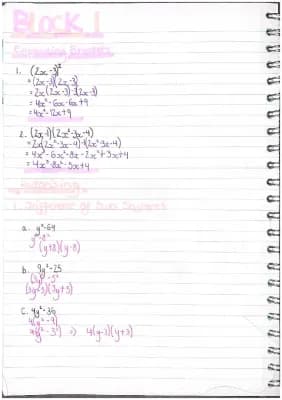 BLOCK 1
Expanding Brackets
1. (2x-3)²
= (2x-3)(2x-3)
= 2x(2x-3)-3(2x-3)
= 4x²-6x-6x+9
= 4x²-12x+9
2. (2x-1)(2x²-3x-4)
= 2x(2x²-3x-4)-1(2x²-3x-4)
= 4x³-6x²-8x-2x²+3x+4
= 4x³-8x²-5x+4
Factorising
1. Difference of Two Squares
a. y²-64
y²-8²
(y+8)(y-8)
b. 9y²-25
(3y)²-5²
(3y-5)(3y+5)
c. 4y²-36
4(y²-9)
4(y²-3²) ⇒ 4(y-3)(y+3)